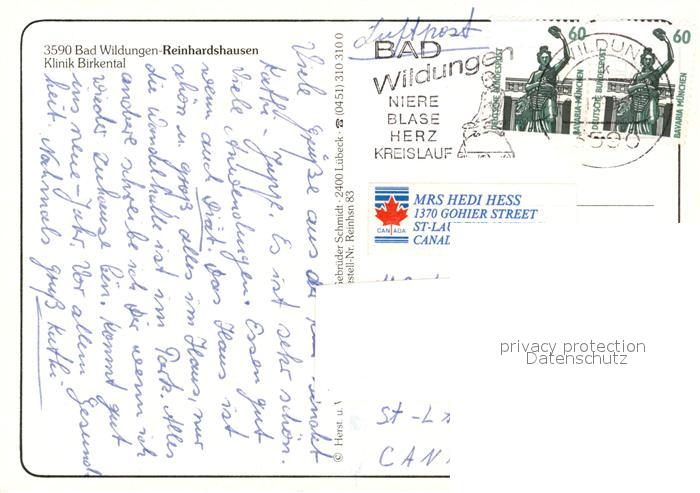 3590 Bad Wildungen-Reinhardshausen
Klinik Birkental
Viele Grüße aus der
Kathi - Jupp. Es ist sehr schön.
Viele Anwendungen. Essen gut
wenn auch Diät. Das Haus ist
schön u. groß alles im Haus, nur
die Wandelhalle ist im Park. Alles
andere schreibe ich Dir wenn ich
wieder zuhause bin. Kommt gut
ins neue Jahr. Vor allem Gesund-
heit. Nochmals Gruß Kathi
© Herst. u. V
Gebrüder Schmidt · 2400 Lübeck · ☎ (0451) 310 310 0
Bestell-Nr. Reinhsn 83
Luftpost
BAD
Wildungen
NIERE
BLASE
HERZ
KREISLAUF
WILDUN
3590
DEUTSCHE BUNDESPOST
60
BAVARIA MÜNCHEN
DEUTSCHE BUNDESPOST
60
BAVARIA MÜNCHEN
CANADA
MRS HEDI HESS
1370 GOHIER STREET
ST-LAU
CANAD
St-La
CAN
privacy protection
Datenschutz